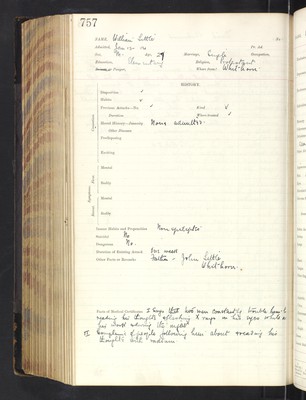 757
NAME, William Little
Admitted, Jan 12
Sex, M. Age, 29 Marriage, Single Occupation,
Education, Elementary Religion, Protestant
Pauper, Where from? Whithorn
HISTORY.
Disposition √
Habits √
Previous Attacks—No. √ Kind √
Duration Where treated √
Moral History—Insanity None admitted.
Other Diseases
Predisposing
Exciting
Mental
Bodily
Mental
Bodily
Insane Habits and Propensities Non epileptic
Suicidal No
Dangerous No.
Duration of Existing Attack One week
Other Facts or Remarks Father - John Little
Whithorn.
Facts of Medical Certificates: I Says that two men constantly trouble him by
reading his thoughts & flashing X rays in his eyes while at
his work & during the night
II Complains of people following him about & reading his
thoughts with